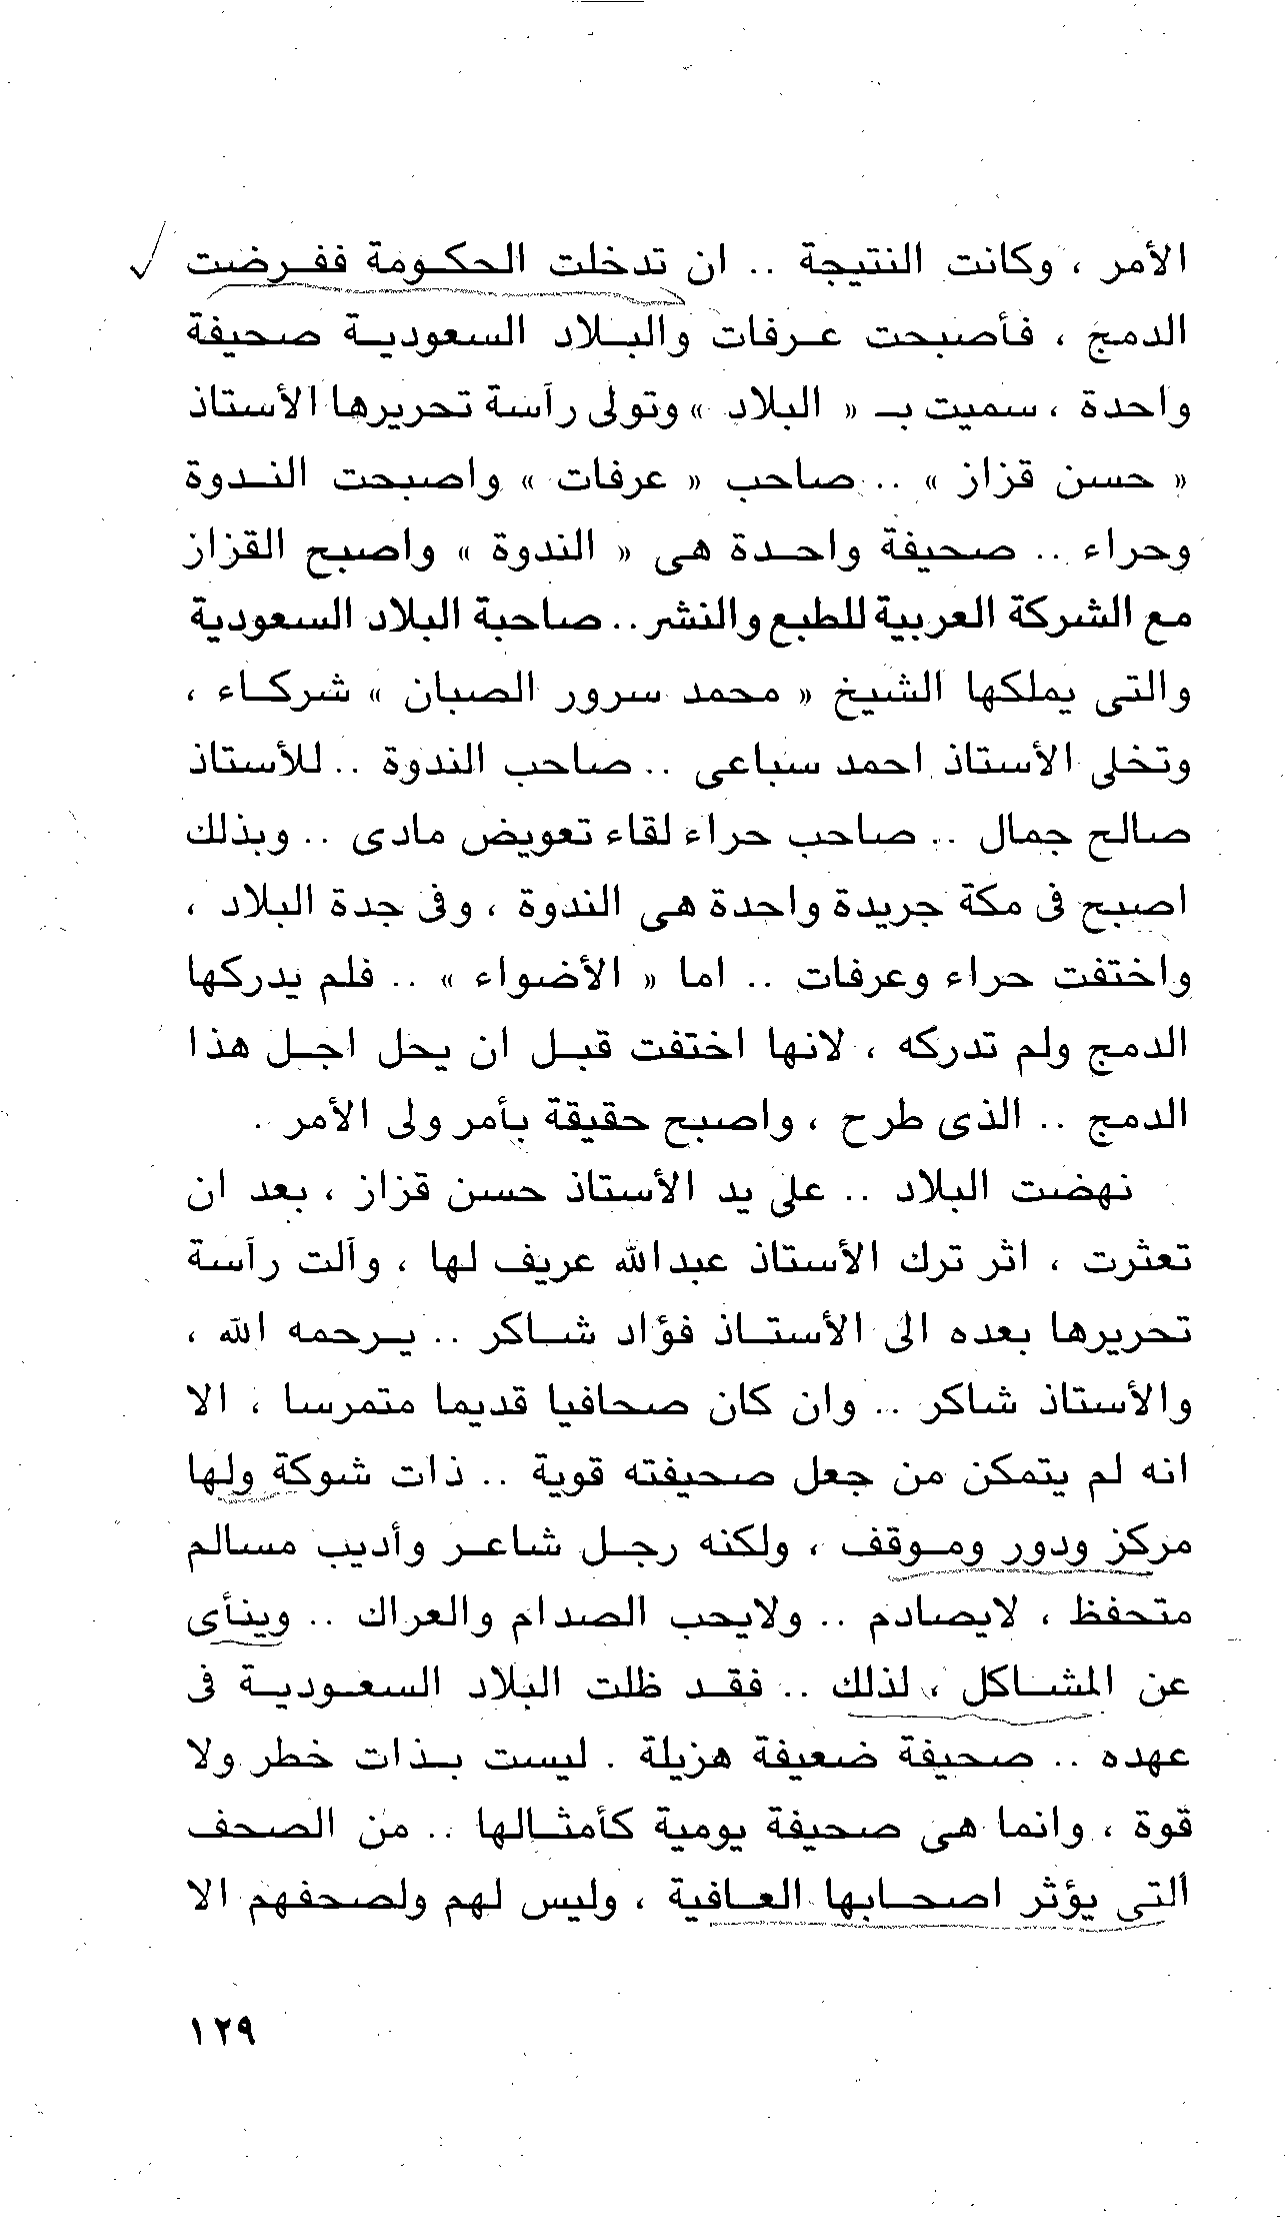 الأمر ، وكانت النتيجة .. ان تدخلت الحكومة ففرضت
الدمج ، فأصبحت عرفات والبلاد السعودية صحيفة
واحدة ، سميت بـ « البلاد » وتولى رآسة تحريرها الأستاذ
« حسن قزاز » .. صاحب « عرفات » واصبحت الندوة
وحراء .. صحيفة واحدة هى « الندوة » واصبح القزاز
مع الشركة العربية للطبع والنشر .. صاحبة البلاد السعودية
والتى يملكها الشيخ « محمد سرور الصبان » شركاء ،
وتخلى الأستاذ احمد سباعى .. صاحب الندوة .. للأستاذ
صالح جمال .. صاحب حراء لقاء تعويض مادى .. وبذلك
اصبح فى مكة جريدة واحدة هى الندوة ، وفى جدة البلاد ،
واختفت حراء وعرفات .. اما « الأضواء » .. فلم يدركها
الدمج ولم تدركه ، لانها اختفت قبل ان يحل اجل هذا
الدمج .. الذى طرح ، واصبح حقيقة بأمر ولى الأمر .
نهضت البلاد .. على يد الأستاذ حسن قزاز ، بعد ان
تعثرت ، اثر ترك الأستاذ عبدالله عريف لها ، وآلت رآسة
تحريرها بعده الى الأستاذ فؤاد شاكر .. يرحمه الله ،
والأستاذ شاكر .. وان كان صحافيا قديما متمرسا ، الا
انه لم يتمكن من جعل صحيفته قوية .. ذات شوكة ولها
مركز ودور وموقف ، ولكنه رجل شاعر وأديب مسالم
متحفظ ، لايصادم .. ولايحب الصدام والعراك .. وينأى
عن المشاكل ، لذلك .. فقد ظلت البلاد السعودية فى
عهده .. صحيفة ضعيفة هزيلة . ليست بذات خطر ولا
قوة ، وانما هى صحيفة يومية كأمثالها .. من الصحف
ألتى يؤثر اصحابها العافية ، وليس لهم ولصحفهم الا
١٢٩